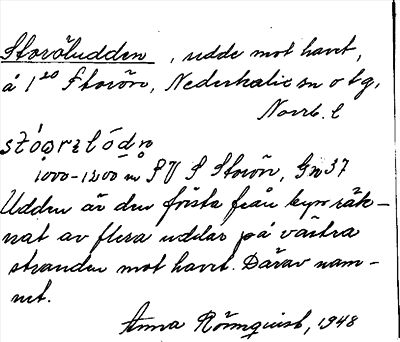 Storöludden, udde mot havet,
å 1²⁰ Storön, Nederkalix sn o tg,
Norrb. l
1000-1200 m SV S Storön, Gn 37
Udden är den första från byn räk-
nat av flera uddar på västra
stranden mot havet. Därav nam-
net.
Anna Römquist, 1948